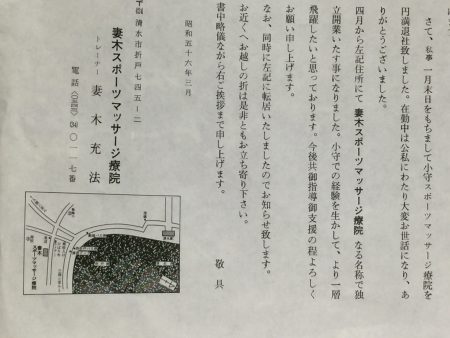 さて、私事 一月末日をもちまして小守スポーツマッサージ療院を
円満退社致しました。在勤中は公私にわたり大変お世話になり、あ
りがとうございました。
四月から左記住所にて 妻木スポーツマッサージ療院 なる名称で独
立開業いたす事になりました。小守での経験を生かして、より一層
飛躍したいと思っております。今後共御指導御支援の程よろしく
お願い申し上げます。
なお、同時に左記に転居いたしましたのでお知らせ致します。
お近くへお越しの折は是非ともお立ち寄り下さい。
書中略儀ながら右ご挨拶まで申し上げます。
敬具
昭和五十六年三月
清水市折戸七四五－二
妻木スポーツマッサージ療院
トレーナー 妻木充法
電話
〇一一七番
妻木
スポーツマッサージ
療院